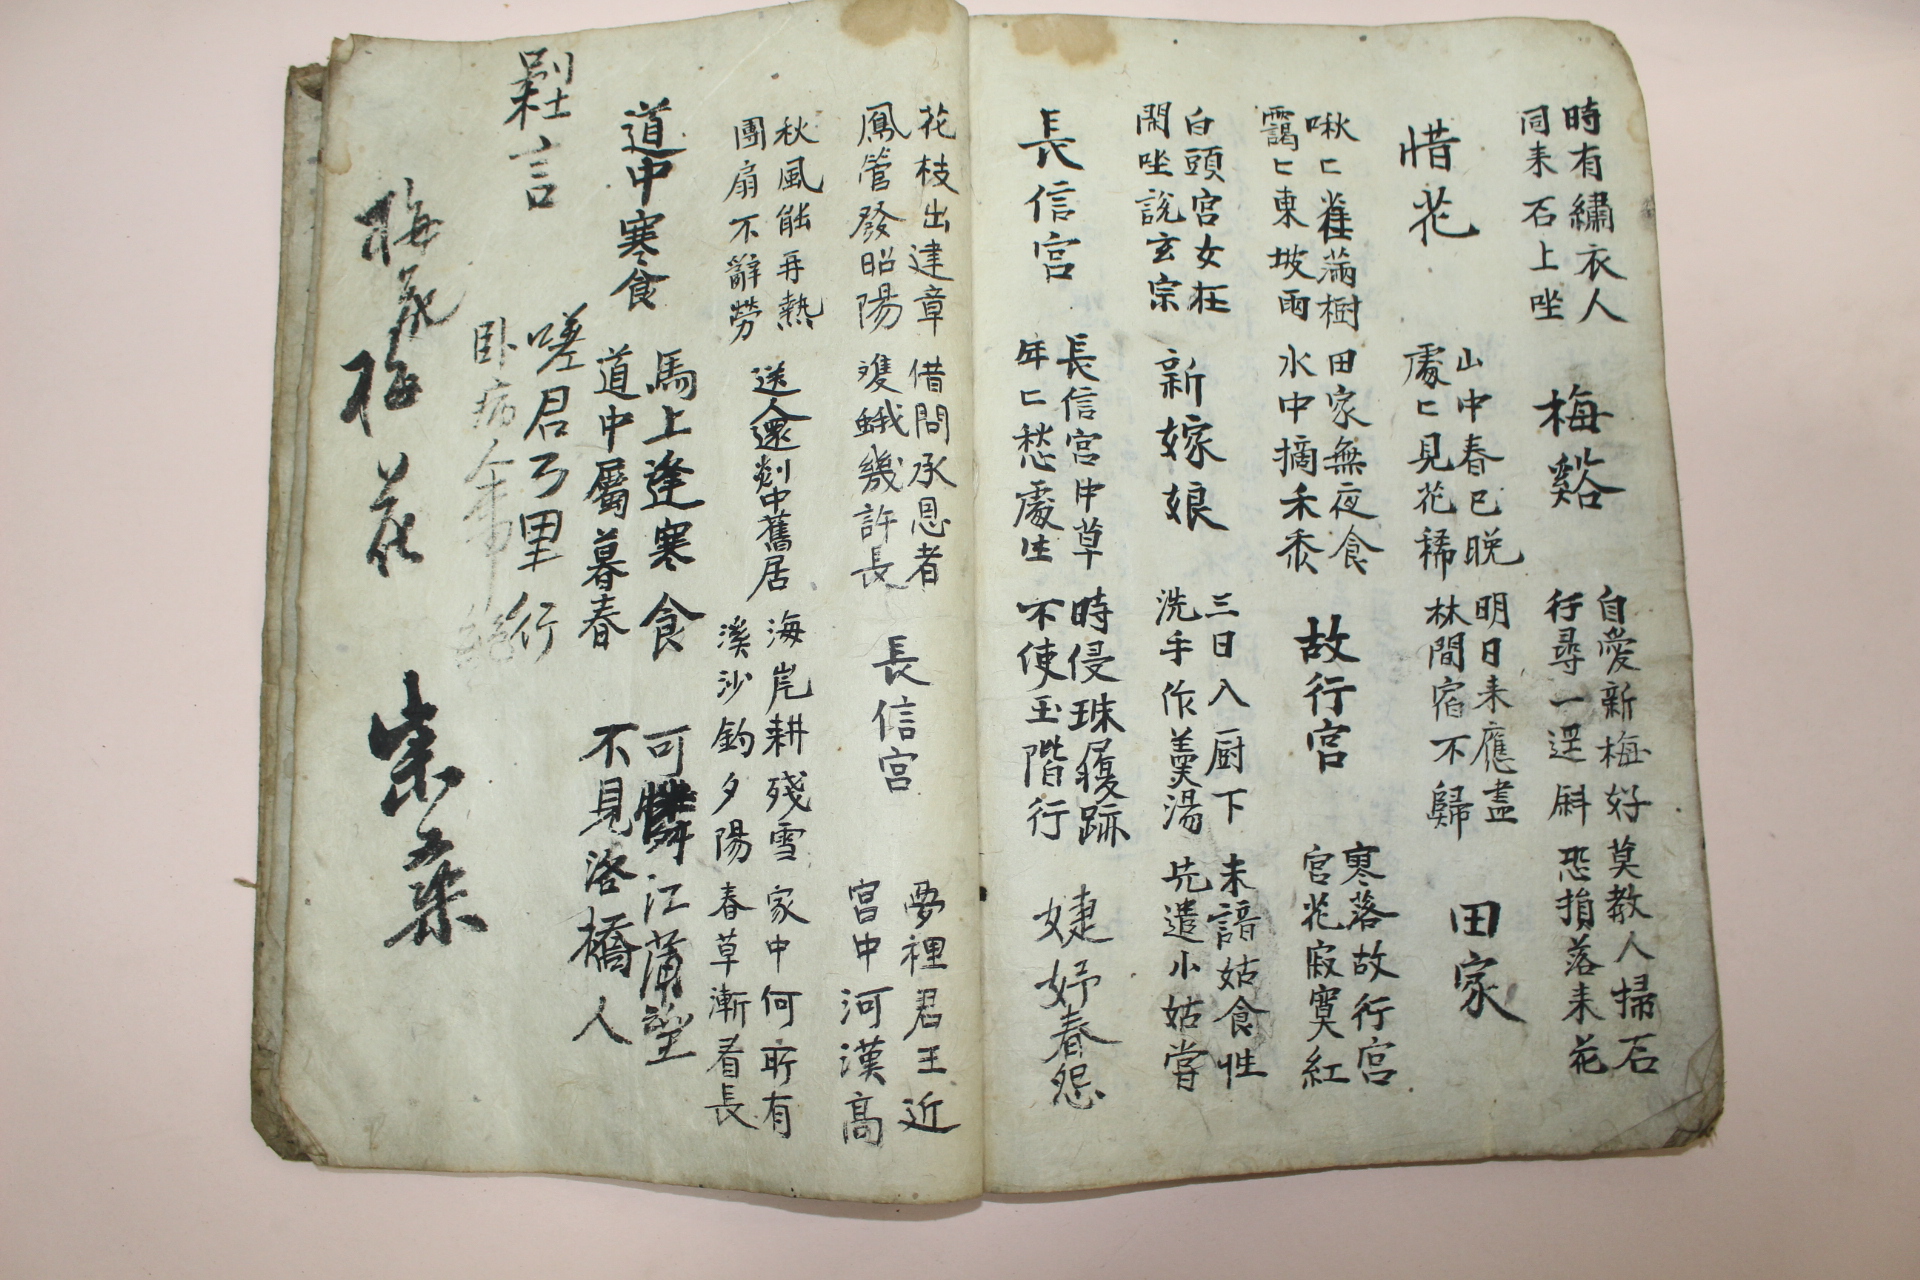 時有繡衣人
同来石上坐
梅谿
自愛新梅好
行尋一逕斜
莫教人掃石
恐損落来花
惜花
山中春已晚
處匕見花稀
明日来應盡
林間宿不歸
田家
啾匕雀滿樹
靄匕東坡雨
田家無夜食
水中摘禾黍
故行宮
寥落故行宮
宮花寂寞紅
白頭宮女在
閑坐說玄宗
新嫁娘
三日入厨下
洗手作羹湯
未諳姑食性
先遣小姑嘗
長信宮
長信宮中草
年匕愁處生
時侵珠履跡
不使玉階行
婕妤春怨
花枝出建章
鳳管發昭陽
借問承恩者
雙蛾幾許長
長信宮
夢裡君王近
宮中河漢高
秋風能再熱
團扇不辭勞
送人還剡中舊居
海岸耕殘雪
溪沙釣夕陽
家中何所有
春草漸看長
道中寒食
馬上逢寒食
道中屬暮春
可憐江蒲望
不見洛橋人
言
嗟君万里行
卧病
梅
梅花